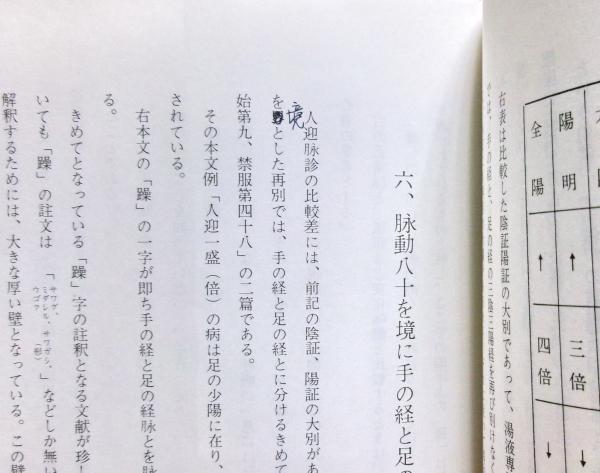 陽明 ↑ 三倍 ↓
全陽 ↑ 四倍 ↓
右表は比較した陰証陽証の大別であって、湯液専
では、手の経と、足の経の三陰三陽経を再び別けなく
六、脉動八十を境に手の経と足の
人迎脉診の比較差には、前記の陰証、陽証の大別があ
を境とした再別では、手の経と足の経とに分けるきめて
始第九、禁服第四十八」の二篇である。
その本文例「人迎一盛（倍）の病は足の少陽に在り、
されている。
右本文の「躁」の一字が即ち手の経と足の経脉とを脉
る。
きめてとなっている「躁」字の註釈となる文献が珍し
いても「躁」の註文は「サワグ、ミダレル、サワガシ、ウゴク（形）」などしか無い
解釈するためには、大きな厚い壁となっている。この壁